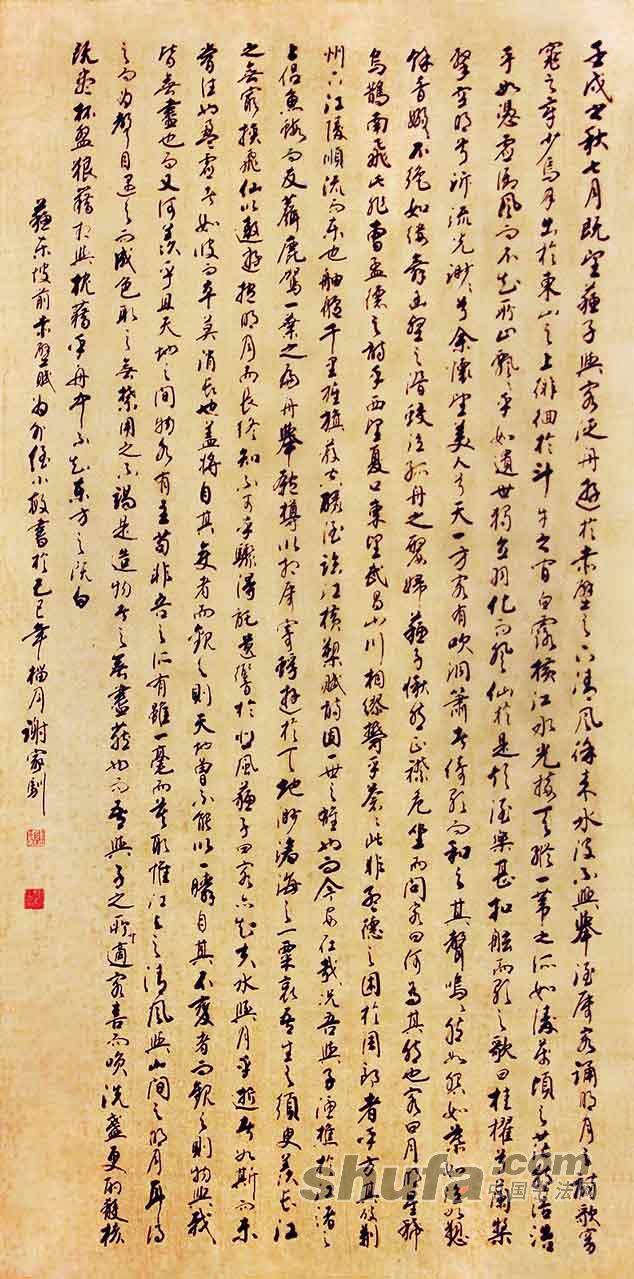 壬戌之秋七月既望蘇子與客泛舟遊於赤壁之下清風徐來水波不興舉酒屬客誦明月之詩歌窈
窕之章少焉月出於東山之上徘徊於斗牛之間白露橫江水光接天縱一葦之所如凌萬頃之茫然浩浩
乎如憑虛御風而不知所止飄飄乎如遺世獨立羽化而登仙於是飲酒樂甚扣舷而歌之歌曰桂櫂兮蘭槳
擊空明兮泝流光渺渺兮余懷望美人兮天一方客有吹洞簫者倚歌而和之其聲嗚嗚然如怨如慕如泣如訴
餘音嫋嫋不絕如縷舞幽壑之潛蛟泣孤舟之嫠婦蘇子愀然正襟危坐而問客曰何為其然也客曰月明星稀
烏鵲南飛此非曹孟德之詩乎西望夏口東望武昌山川相繆鬱乎蒼蒼此非孟德之困於周郎者乎方其破荊
州下江陵順流而東也舳艫千里旌旗蔽空釃酒臨江橫槊賦詩固一世之雄也而今安在哉況吾與子漁樵於江渚之
上侶魚蝦而友麋鹿駕一葉之扁舟舉匏樽以相屬寄蜉蝣於天地渺滄海之一粟哀吾生之須臾羨長江
之無窮挾飛仙以遨遊抱明月而長終知不可乎驟得託遺響於悲風蘇子曰客亦知夫水與月乎逝者如斯而未
嘗往也盈虛者如彼而卒莫消長也蓋將自其變者而觀之則天地曾不能以一瞬自其不變者而觀之則物與我
皆無盡也而又何羨乎且天地之間物各有主苟非吾之所有雖一毫而莫取惟江上之清風與山間之明月耳得
之而為聲目遇之而成色取之無禁用之不竭是造物者之無盡藏也而吾與子之所共適客喜而笑洗盞更酌殽核
既盡杯盤狼藉相與枕藉乎舟中不知東方之既白
蘇東坡前赤壁賦為外侄小敏書於己巳年臘月謝家馴
shufa.com
中国书法网